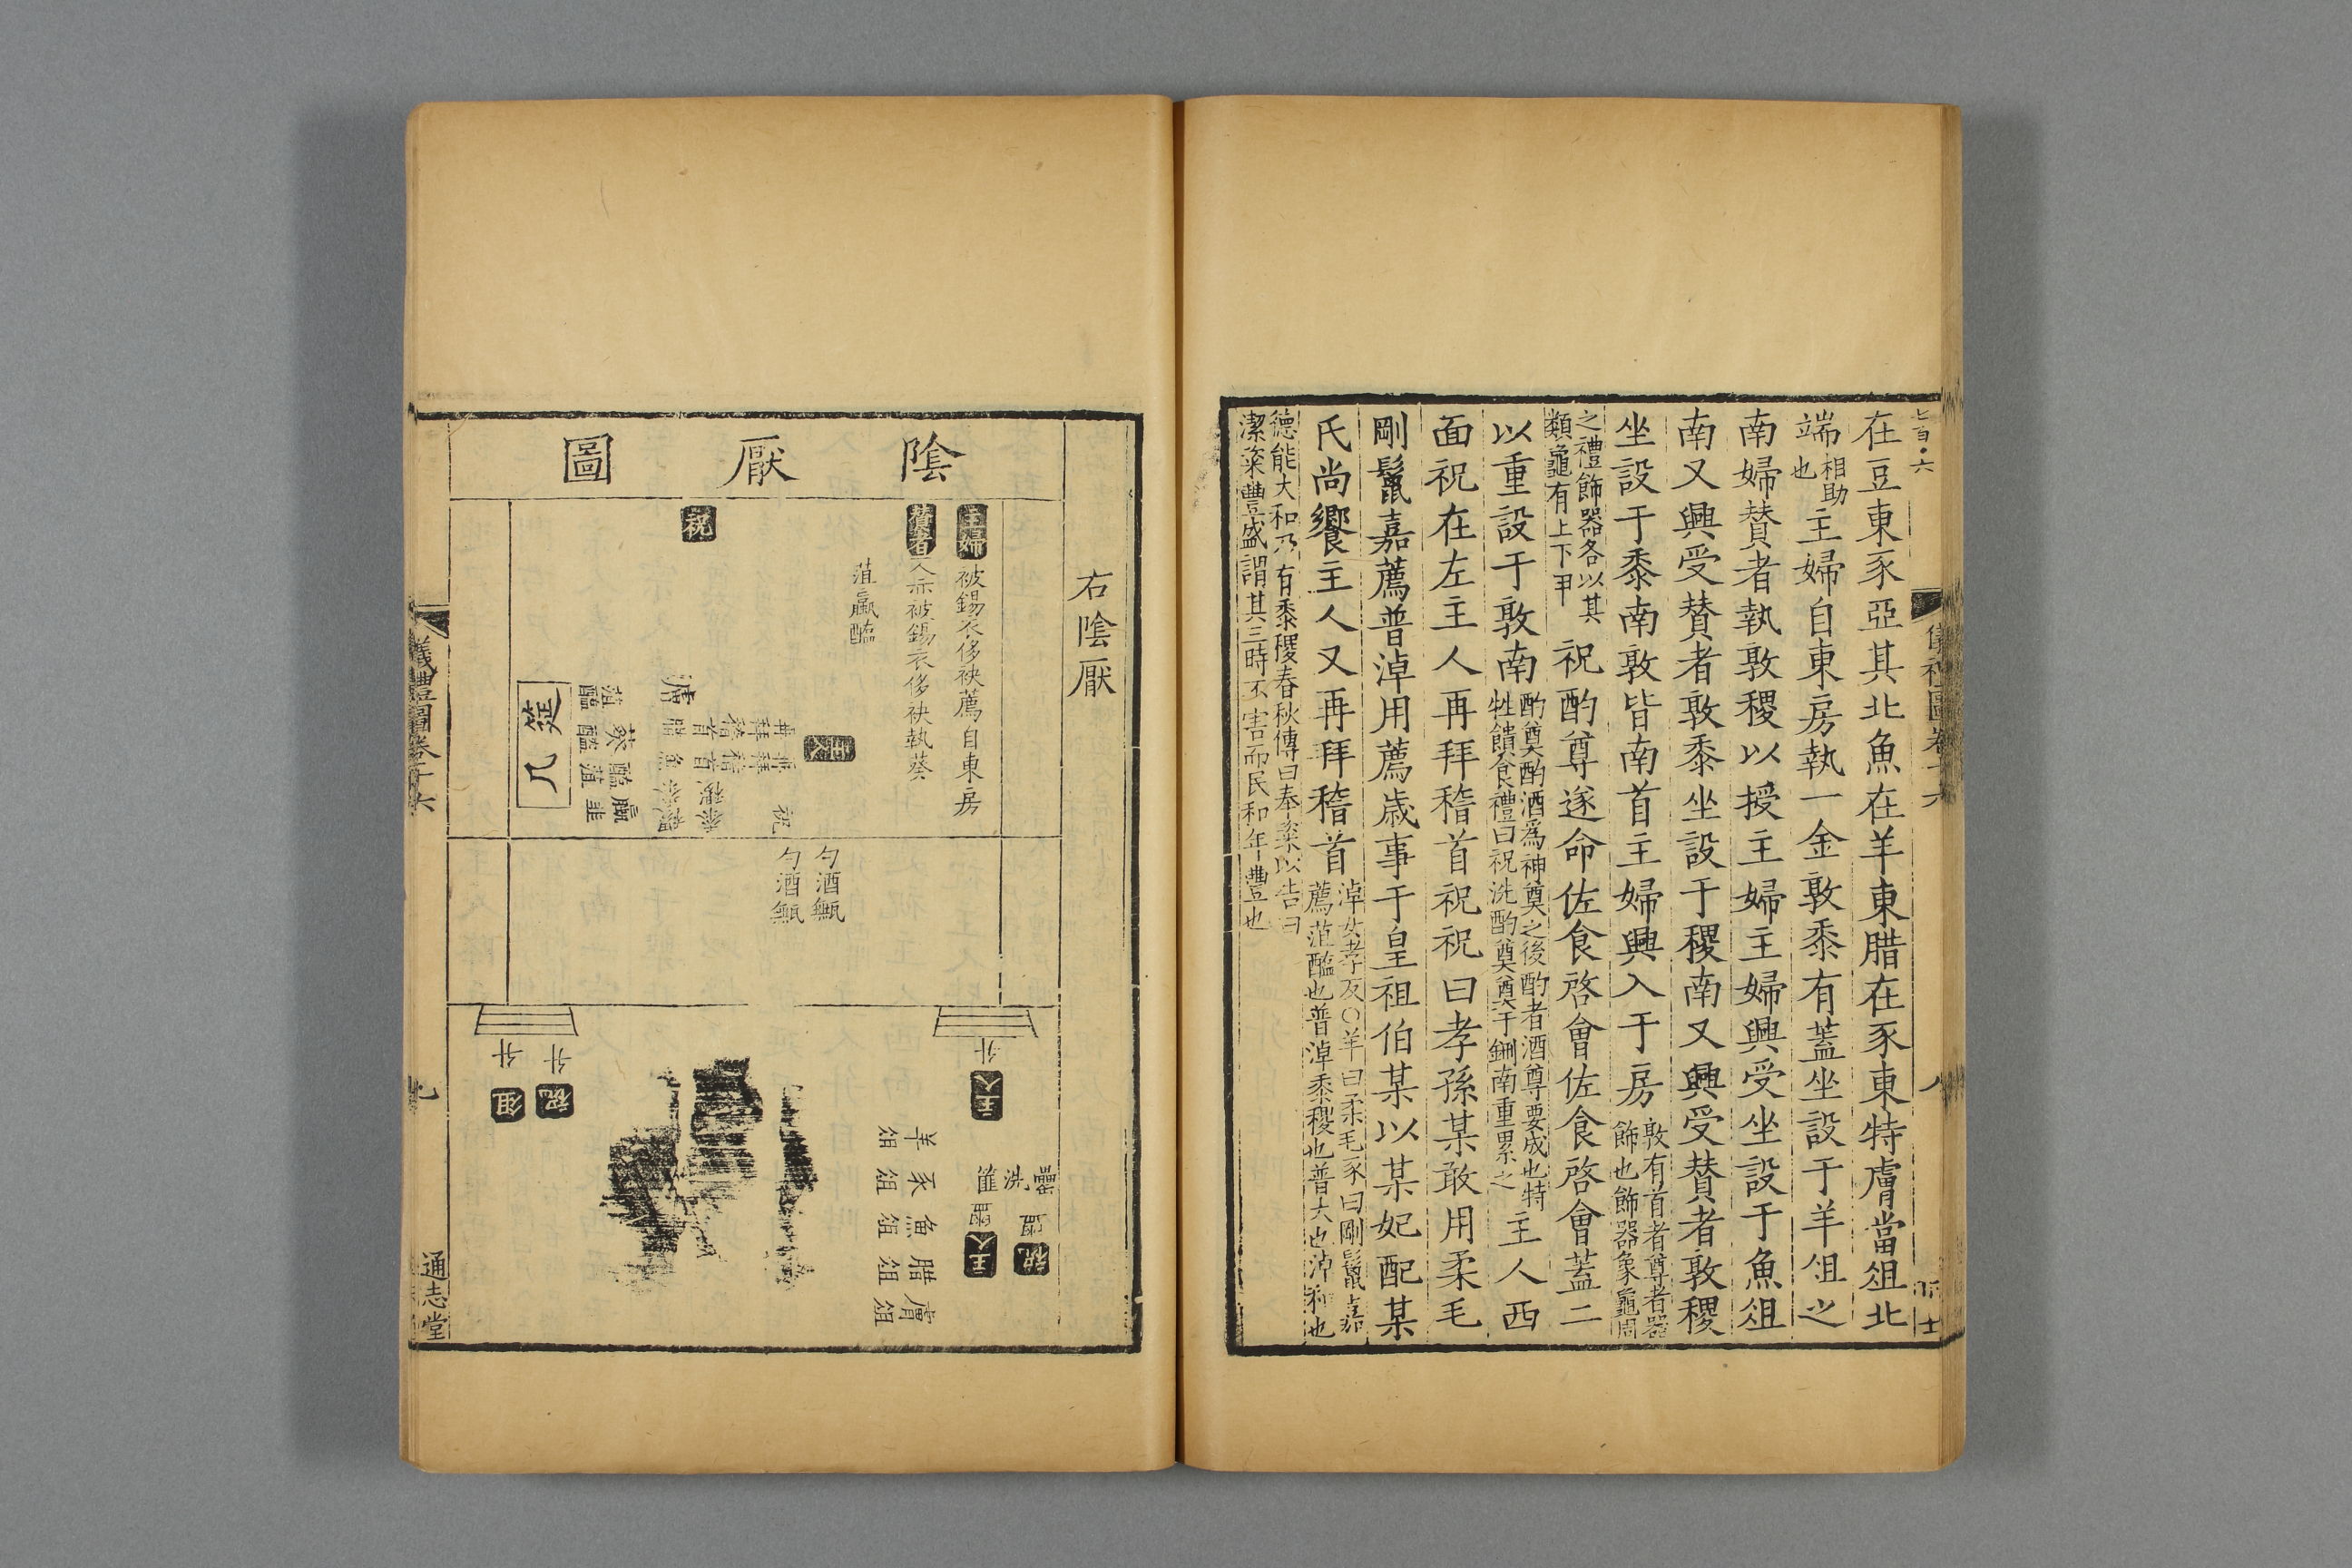 在豆東豕亞其北魚在羊東腊在豕東特膚當俎北
端相助也主婦自東房執一金敦黍有蓋坐設于羊俎之
南婦贊者執敦稷以授主婦主婦興受坐設于魚俎
南又興受贊者敦黍坐設于稷南又興受贊者敦稷
坐設于黍南敦皆南首主婦興入于房敦有首者尊者器飾也飾器象龜周
之禮飾器各以其類龜有上下甲祝酌尊遂命佐食啓會佐食啓會蓋二
以重設于敦南酌奠酌酒爲神奠之後酌者酒尊要成也特牲饋食禮曰祝洗酌奠奠于鉶南重累之主人西
面祝在左主人再拜稽首祝祝曰孝孫某敢用柔毛
剛鬣嘉薦普淖用薦歲事于皇祖伯某以某妃配某
氏尚饗主人又再拜稽首
羊曰柔毛豕曰剛鬣嘉
薦菹醢也普淖黍稷也普大也淖和也
德能大和乃有黍稷春秋傳曰奉粢以告曰
潔粢豐盛謂其三時不害而民和年豐也
右陰厭
陰厭圖
主婦被錫衣侈袂薦自東房
贊者
亦被錫衣侈袂執葵
菹蠃醢
祝
筵
几
勺酒甒
勺酒甒
升
升
升
祝
俎
主人
羊俎
豕俎
魚俎
腊俎
膚俎
篚
洗
主人
祝
儀禮圖卷十六
通志堂